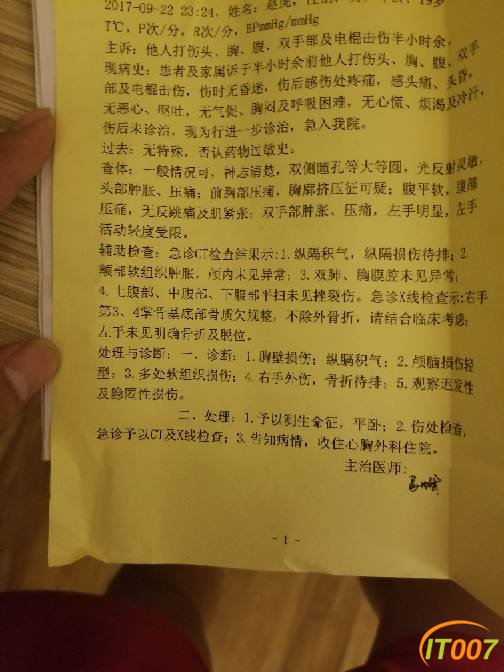 2017-09-22 23:24, 姓名: 赵虎, 性别: 男, 19岁
T℃, P次/分, R次/分, BPmmHg/mmHg
主诉: 他人打伤头、胸、腹、双手部及电棍击伤半小时余,
现病史: 患者及家属诉于半小时余前他人打伤头、胸、腹、双手
部及电棍击伤, 伤时无昏迷, 伤后感伤处疼痛, 感头痛、头昏,
无恶心、呕吐, 无气促、胸闷及呼吸困难, 无心慌、烦渴及冷汗,
伤后未诊治, 现为行进一步诊治, 急入我院。
过去: 无特殊, 否认药物过敏史。
查体: 一般情况可, 神志清楚, 双侧瞳孔等大等圆, 光反射灵敏,
头部肿胀、压痛; 前胸部压痛, 胸廓挤压征可疑; 腹平软, 腹部
压痛, 无反跳痛及肌紧张; 双手部肿胀、压痛, 左手明显, 左手
活动轻度受限。
辅助检查: 急诊CT检查结果示: 1.纵隔积气, 纵隔损伤待排; 2.
颞部软组织肿胀, 颅内未见异常; 3.双肺、胸膜腔未见异常;
4.上腹部、中腹部、下腹部平扫未见挫裂伤。急诊X线检查示:右手
第3、4掌骨基底部骨质欠规整, 不除外骨折, 请结合临床考虑;
左手未见明确骨折及脱位。
处理与诊断: 一、诊断: 1.胸壁损伤; 纵隔积气; 2.颅脑损伤轻
型; 3.多处软组织损伤; 4.右手外伤, 骨折待排; 5.观察迟发性
及隐匿性损伤。
二、处理: 1.予以测生命征, 平卧; 2.伤处检查,
急诊予以CT及X线检查; 3.告知病情, 收住心胸外科住院。
主治医师:
- 1 -
IT007